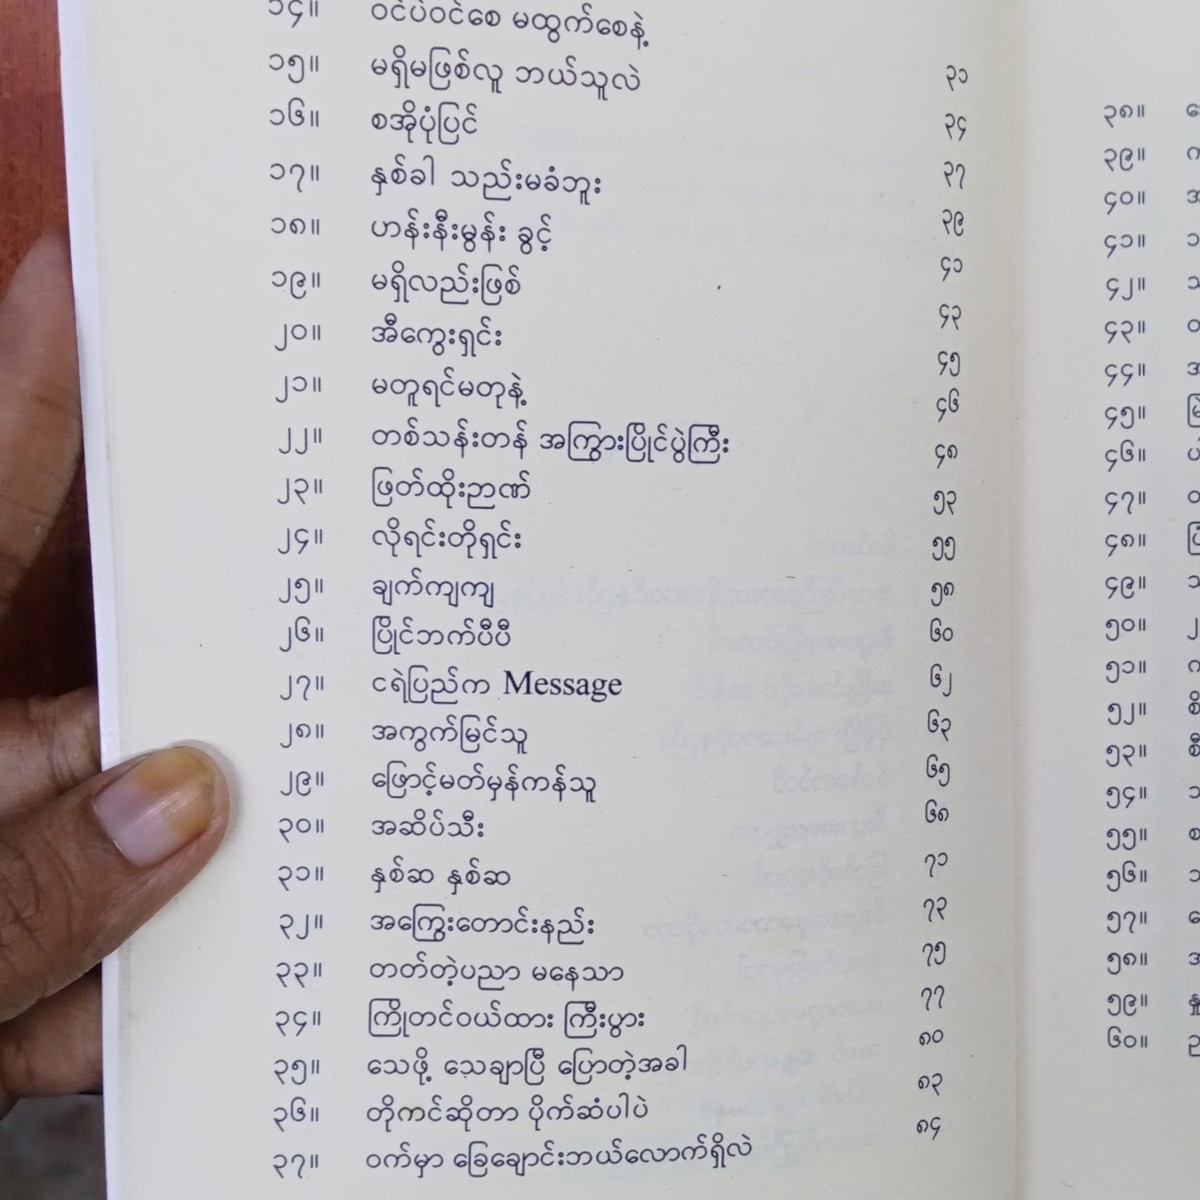 ၁၄။ ဝင်ပဲဝင်စေ မထွက်စေနဲ့
၁၅။ မရှိမဖြစ်လူ ဘယ်သူလဲ ၃၁
၁၆။ စအိုပုံပြင် ၃၄
၁၇။ နှစ်ခါ သည်းမခံဘူး ၃၇
၁၈။ ဟန်းနီးမွန်း ခွင့် ၃၉
၁၉။ မရှိလည်းဖြစ် ၄၁
၂၀။ အီကွေးရှင်း ၄၃
၂၁။ မတူရင်မတုနဲ့ ၄၅
၂၂။ တစ်သန်းတန် အကြွားပြိုင်ပွဲကြီး ၄၆
၂၃။ ဖြတ်ထိုးဉာဏ် ၄၈
၂၄။ လိုရင်းတိုရှင်း ၅၃
၂၅။ ချက်ကျကျ ၅၅
၂၆။ ပြိုင်ဘက်ပီပီ ၅၈
၂၇။ ငရဲပြည်က Message ၆၀
၂၈။ အကွက်မြင်သူ ၆၂
၂၉။ ဖြောင့်မတ်မှန်ကန်သူ ၆၃
၃၀။ အဆိပ်သီး ၆၅
၃၁။ နှစ်ဆ နှစ်ဆ ၆၈
၃၂။ အကြွေးတောင်းနည်း ၇၁
၃၃။ တတ်တဲ့ပညာ မနေသာ ၇၃
၃၄။ ကြိုတင်ဝယ်ထား ကြီးပွား ၇၅
၃၅။ သေဖို့ သေချာပြီ ပြောတဲ့အခါ ၇၇
၃၆။ တိုကင်ဆိုတာ ပိုက်ဆံပါပဲ ၈၀
၃၇။ ဝက်မှာ ခြေချောင်းဘယ်လောက်ရှိလဲ ၈၃
၈၄
၃၈။
၃၉။
၄၀။
၄၁။
၄၂။
၄၃။
၄၄။
၄၅။
၄၆။
၄၇။
၄၈။
၄၉။
၅၀။
၅၁။
၅၂။
၅၃။
၅၄။
၅၅။
၅၆။
၅၇။
၅၈။
၅၉။
၆၀။